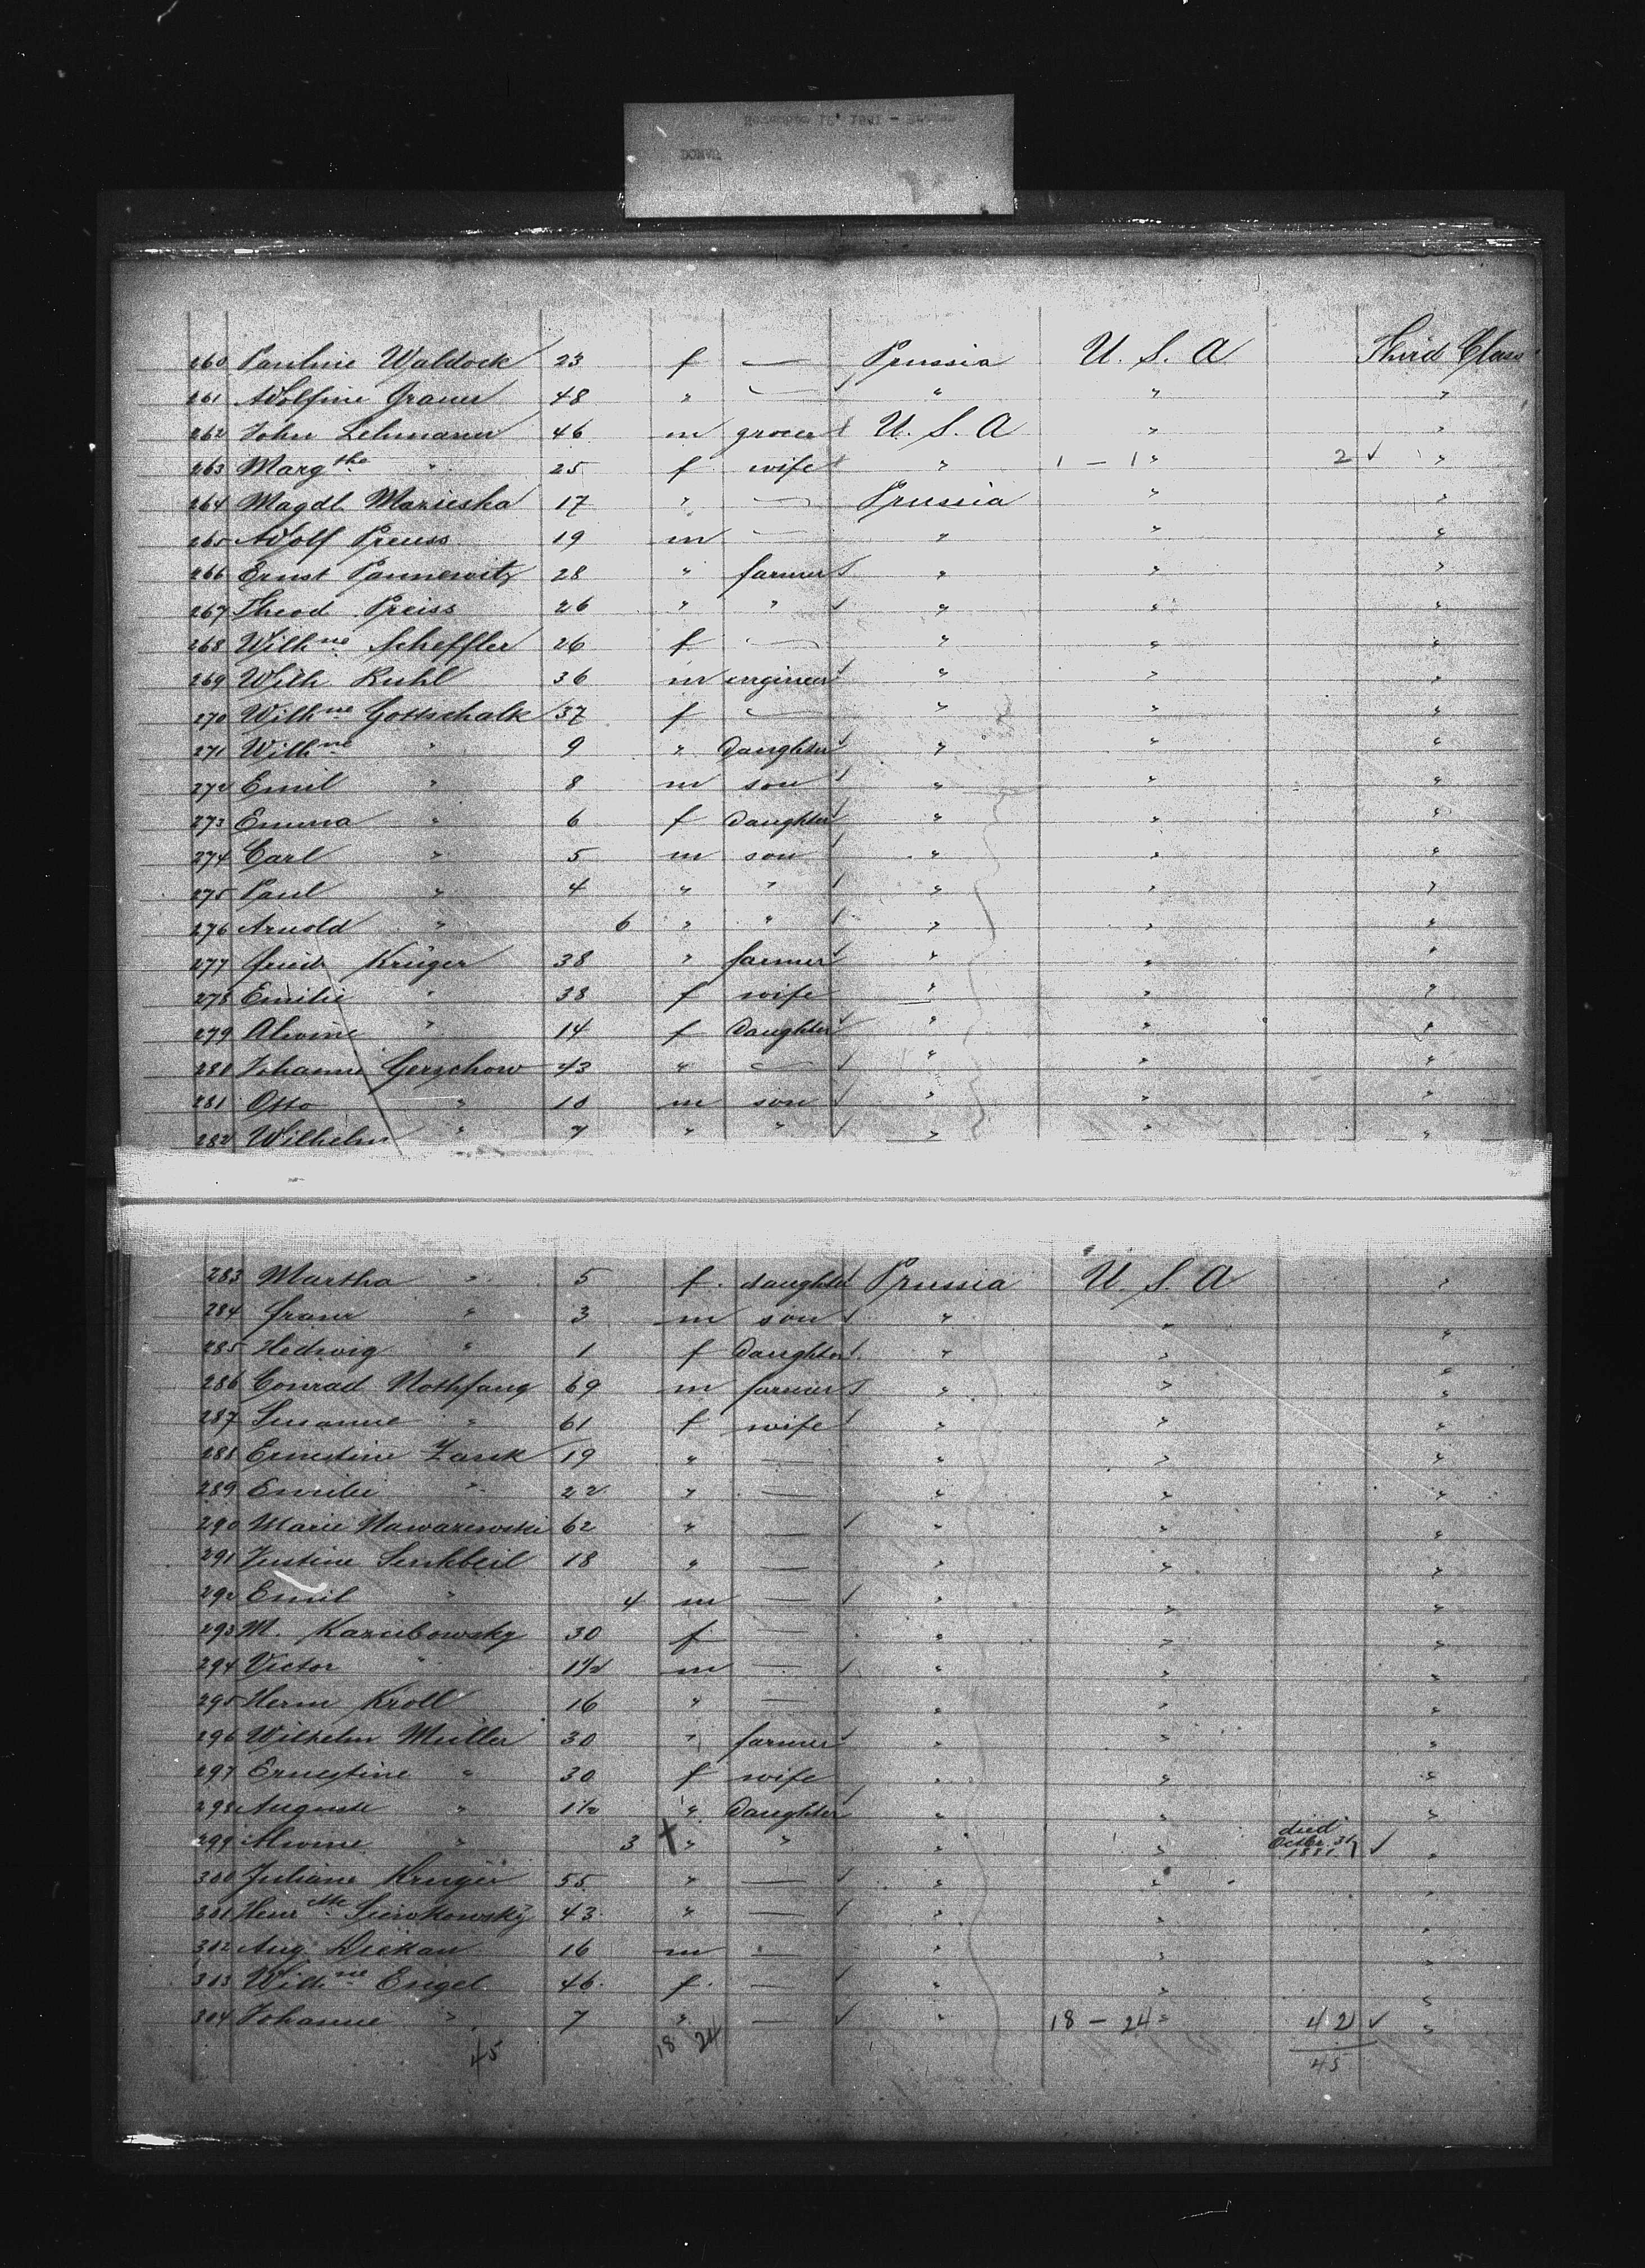 260 Pauline Waldock 23 f — Prussia U. S. A Third Class
261 Adolfine Grauer 48 " — " " "
262 John Lehmann 46 m grocer U. S. A " "
263 Marg the " 25 f wife " 1 - 1 " 2 ✓ "
264 Magdl. 17 " — Prussia " "
265 Adolf Preuss 19 m — " " "
266 Ernst Pannewitz 28 " farmer " " "
267 Theod. Preiss 26 " " ✓ " " "
268 Wilhne Scheffler 26 f — " " "
269 Wilh Ruhl 36 m engineer " " "
270 Wilhne Gottschalk 37 f — " " "
271 Wilhne " 9 " Daughter " " "
272 Emil " 8 m son " " "
273 Emma " 6 f Daughter " " "
274 Carl " 5 m son " " "
275 Paul " 4 " " " " "
276 Arnold " 6 " " " " "
277 Fried. Krüger 38 " farmer " " "
278 Emilie " 38 f wife " " "
279 Alwine " 14 f Daughter " " "
280 Johanne Gerschow 43 " — " " "
281 Otto " 10 m son " " "
282 Wilhelm " 7 " " " " "
283 Martha " 5 f. daughter Prussia U. S. A "
284 Franz " 3 m son " " "
285 Hedwig " 1 f Daughter " " "
286 Conrad Nothfang 69 m farmer " " "
287 Susanne " 61 f wife " " "
288 Ernestine 19 " — " " "
289 Emilie " 22 " — " " "
290 Marie 62 " — " " "
291 Justine Senkbeil 18 " — " " "
292 Emil " 4 m — " " "
293 M. 30 f — " " "
294 Victor " 1½ m — " " "
295 Herm Kroll 16 " — " " "
296 Wilhelm Müller 30 " farmer " " "
297 Ernestine " 30 f wife " " "
298 Auguste " 1½ " Daughter " " "
299 Alwine " 3 " " " " died Octbr. 31 1881 ✓ "
300 Juliane Krüger 55 " — " " "
301 43 " — " " "
302 Aug. 16 m — " " "
303 Wilhne Engel 46 f. — " " "
304 Johanne " 7 " — " 18 - 24 " 42 ✓ "
45 18 24 45